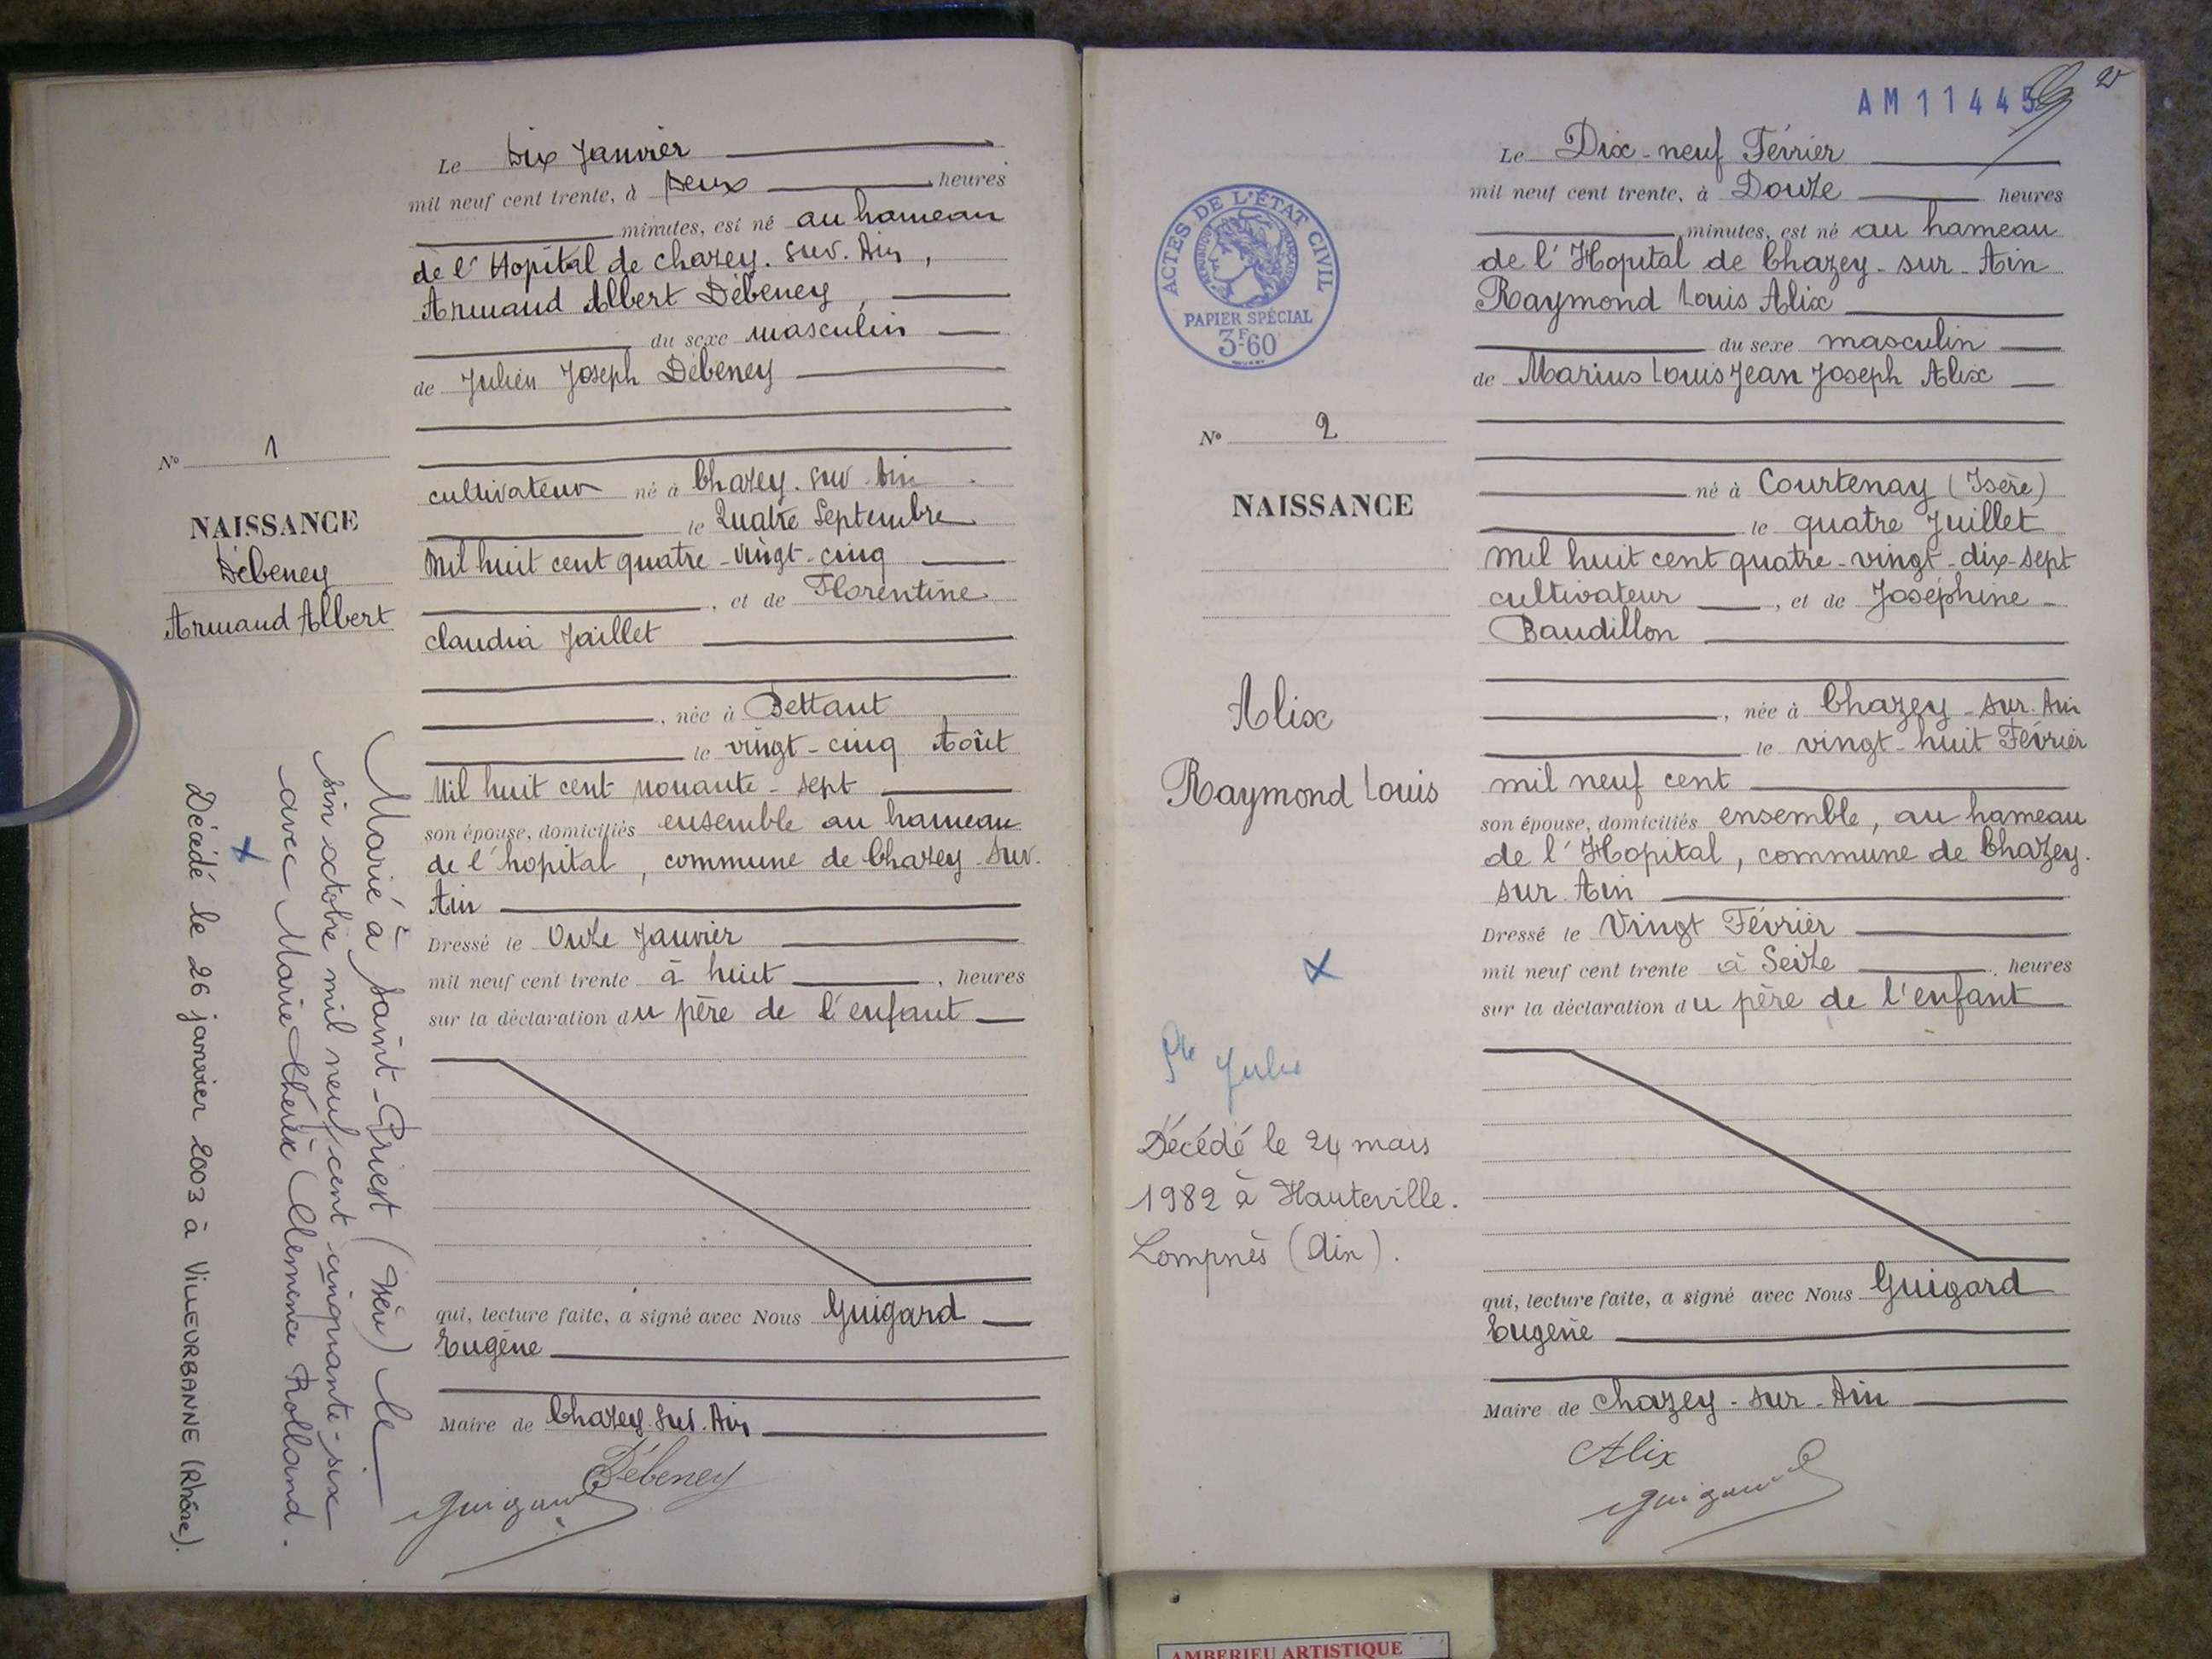 Le Dix Janvier
mil neuf cent trente, à Deux heures
minutes, est né au hameau
de l'Hopital de chazey. sur. Ain,
Armand Albert Débeney,
du sexe masculin
de Julien Joseph Débeney
N° 1
NAISSANCE
Débeney
Armand Albert
cultivateur né à Chazey. sur Ain
le Quatre Septembre
Mil huit cent quatre-vingt-cinq
, et de Florentine
claudia Jaillet
, née à Bettant
le vingt-cinq Août
Mil huit cent nonante-sept
son épouse, domiciliés ensemble au hameau
de l'hopital, commune de Chazey-sur.
Ain
Dressé le Onze Janvier
mil neuf cent trente à huit, heures
sur la déclaration du père de l'enfant
qui, lecture faite, a signé avec Nous Guigard
Eugène
Maire de Chazey. sur. Ain
Débeney
Guigard
Marié à Saint-Priest (Isère) le
six octobre mil neuf cent cinquante-six
avec Marie Clemence Rolland.
Décédé le 26 janvier 2003 à VILLEURBANNE (Rhône).
AM 11445
ACTES DE L'ÉTAT CIVIL
RÉPUBLIQUE FRANÇAISE
PAPIER SPÉCIAL
3F60
Le Dix-neuf Février
mil neuf cent trente, à Douze heures
minutes, est né au hameau
de l'Hopital de Chazey-sur-Ain
Raymond Louis Alix
du sexe masculin
de Marius Louis Jean Joseph Alix
N° 2
NAISSANCE
Alix
Raymond Louis
né à Courtenay (Isère)
le quatre Juillet
mil huit cent quatre-vingt-dix-sept
cultivateur, et de Joséphine
Baudillon
, née à Chazey-sur.Ain
le vingt-huit Février
mil neuf cent
son épouse, domiciliés ensemble, au hameau
de l'Hopital, commune de Chazey.
sur.Ain
Dressé le Vingt Février
mil neuf cent trente à Seize heures
sur la déclaration du père de l'enfant
Ste Julie
Décédé le 24 mars
1982 à Hauteville.
Lompnès (Ain).
qui, lecture faite, a signé avec Nous Guigard
Eugène
Maire de Chazey-sur-Ain
Alix
Guigard
AMBERIEU ARTISTIQUE